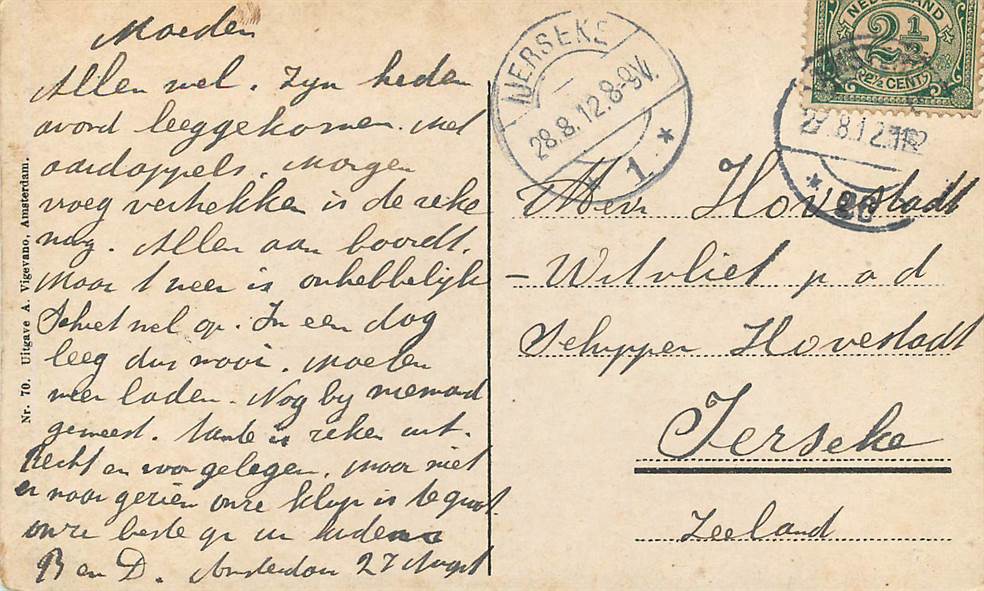 Moeder
Allen wel. Zyn heden
avond leeggekomen. Met
aardappels. Morgen
vroeg vertrekken is de zeke
nog. Allen aan boordt.
Maar t weer is onhebbelyk
Schiet wel op. In een dag
leeg dus mooi. Moeten
weer laden. Nog by niemand
geweest. tante is zeker uit.
Recht en voor gelegen. maar niet
er naar gezien onze klip is te groot
onze beste gr
B en D. Amsterdam 27 August
Nr. 70. Uitgave A. Vigevano, Amsterdam.
IJERSEKE
28.8.12.8-9V.
1
NEDERLAND
2½
2½ CENT
27.8.12
Mevr Hovestadt
- Witvliet p a d
Schipper Hovestadt
Ierseke
Zeeland